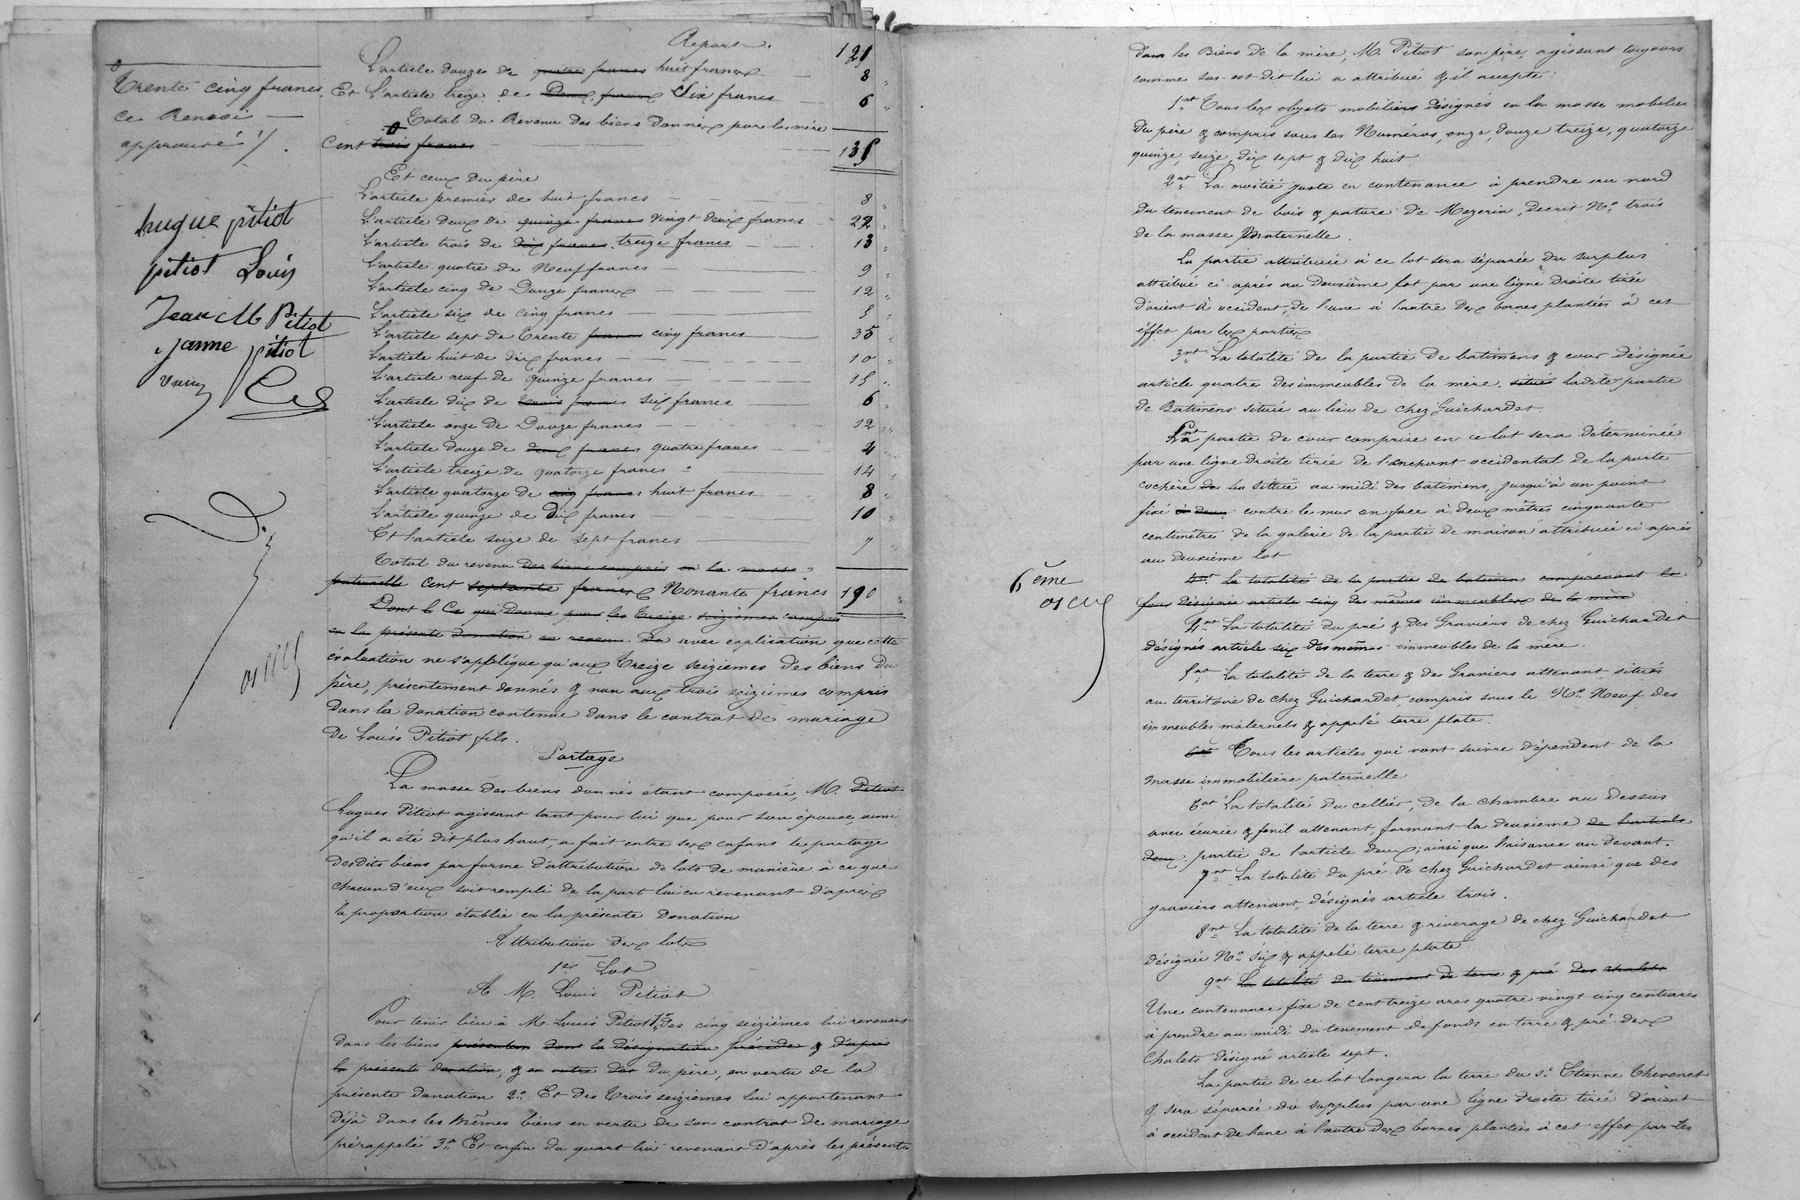 Report 121
L'article douze de quatre francs huit francs 8
Et L'article treize de Deux francs Six francs 6
Total du Revenu Des biens Donnés par la mère
Cent trois francs 135
Trente cinq francs.
ce Renvoi
approuvé /.
Et ceux du père
L'article premier de huit francs 8
L'article deux de quinze francs vingt deux francs 22
L'article trois de dix francs treize francs 13
L'article quatre de Neuf francs 9
L'article cinq de Douze francs 12
L'article six de cinq francs 5
L'article sept de Trente francs cinq francs 35
L'article huit de dix francs 10
L'article neuf de quinze francs 15
L'article dix de francs six francs 6
L'article onze de Douze francs 12
L'article douze de deux francs quatre francs 4
L'article treize de quatorze francs 14
L'article quatorze de cinq francs huit francs 8
L'article quinze de Dix francs 10
Et l'article seize de sept francs 7
Total du revenu des biens compris en la masse
paternelle Cent septante francs Nonante francs 190
hugue pitiot
pitiot Louis
Jean M Pitiot
janne pitiot
Dont le Ce qui Donne pour les treize seizièmes compris
en la présente donation un revenu De avec explication que cette
évaluation ne s'applique qu'aux Treize seizièmes des biens du
père, présentement donnés & non aux trois seizièmes compris
Dans la donation contenue dans le contrat de mariage
De Louis Pitiot fils.
Partage
La masse des biens donnés étant composée, M. Pitiot
hugues Pitiot agissant tant pour lui que pour son épouse, ainsi
qu'il a été dit plus haut, a fait entre ses enfans le partage
desdits biens par forme d'attribution de lots de manière à ce que
chacun d'eux soit rempli de la part lui en revenant d'après
la proportion établie en la présente Donation
Attribution des lots
1er Lot
A M. Louis Pitiot
Pour tenir lieu à M. Louis Pitiot 1° Des cinq seizièmes lui revenant
dans les biens dont la désignation précède & d'après
la présente donation, & en outre des du père, en vertu de la
présente donation 2° Et des Trois seizièmes lui appartenant
déjà dans les mêmes biens en vertu de son contrat de mariage
prérappelé 3° Et enfin du quart lui revenant D'après les présentes
Dans les Biens de la mère, M. Pitiot son père, agissant toujours
comme sus-est dit lui a attribué & il accepte:
1nt Tous les objets mobiliers désignés en la masse mobilière
du père & compris sous les Numéros, onze, douze treize, quatorze
quinze, seize, dix sept & dix huit
2nt La moitié juste en contenance à prendre au nord
du tenement de bois & pature de Mezerin, décrit No. trois
de la masse maternelle.
La partie attribuée à ce lot sera séparée du surplus
attribué ci-après au deuxième lot par une ligne droite tirée
d'orient à occident, de l'une à l'autre des bornes plantées à cet
effet par les parties
3nt La totalité de la partie de batimens & cour désignée
article quatre des immeubles de la mère. situé ladite partie
de Batimens située au lieu de chez Guichardet
La partie de cour comprise en ce lot sera déterminée
par une ligne droite tirée de l'anchant occidental de la porte
cochère située au midi des batimens, jusqu'à un point
fixé à deux contre le mur en face à deux mètres cinquante
centimètres de la galerie de la partie de maison attribuée ci-après
au deuxième lot
6ème
4nt La totalité de la partie de batimens comprenant le
four désignée article cinq des mêmes immeubles de la mère
4nt La totalité du pré & des Graviers de chez Guichardet
désignés article six des mêmes immeubles de la mère.
5nt La totalité de la terre & des Graviers attenant situés
au territoire de chez Guichardet compris sous le No. Neuf des
immeubles maternels & appelé terre plate.
6nt Tous les articles qui vont suivre dépendent de la
masse immobilière paternelle
6nt La totalité du cellier, de la chambre au dessus
avec écurie & fenil attenant, formant la deuxième de l'article
deux, partie de l'article deux, ainsi que l'aisance au devant.
7nt La totalité du pré de chez Guichardet ainsi que des
graviers attenant, désignés article trois.
8nt La totalité de la terre & riverage de chez Guichardet
désignée No. Six & appelé terre plate
9nt La totalité du tènement de terre & pré des chalets
Une contenance fixe de cent treize ares quatre vingt cinq centiares
à prendre au midi du tènement de fonds en terre & pré des
Chalets désigné article sept.
La partie de ce lot longera la terre du sr. Etienne Thevenet
& sera séparée du surplus par une ligne droite tirée d'orient
à occident de l'une à l'autre des bornes plantées à cet effet par les